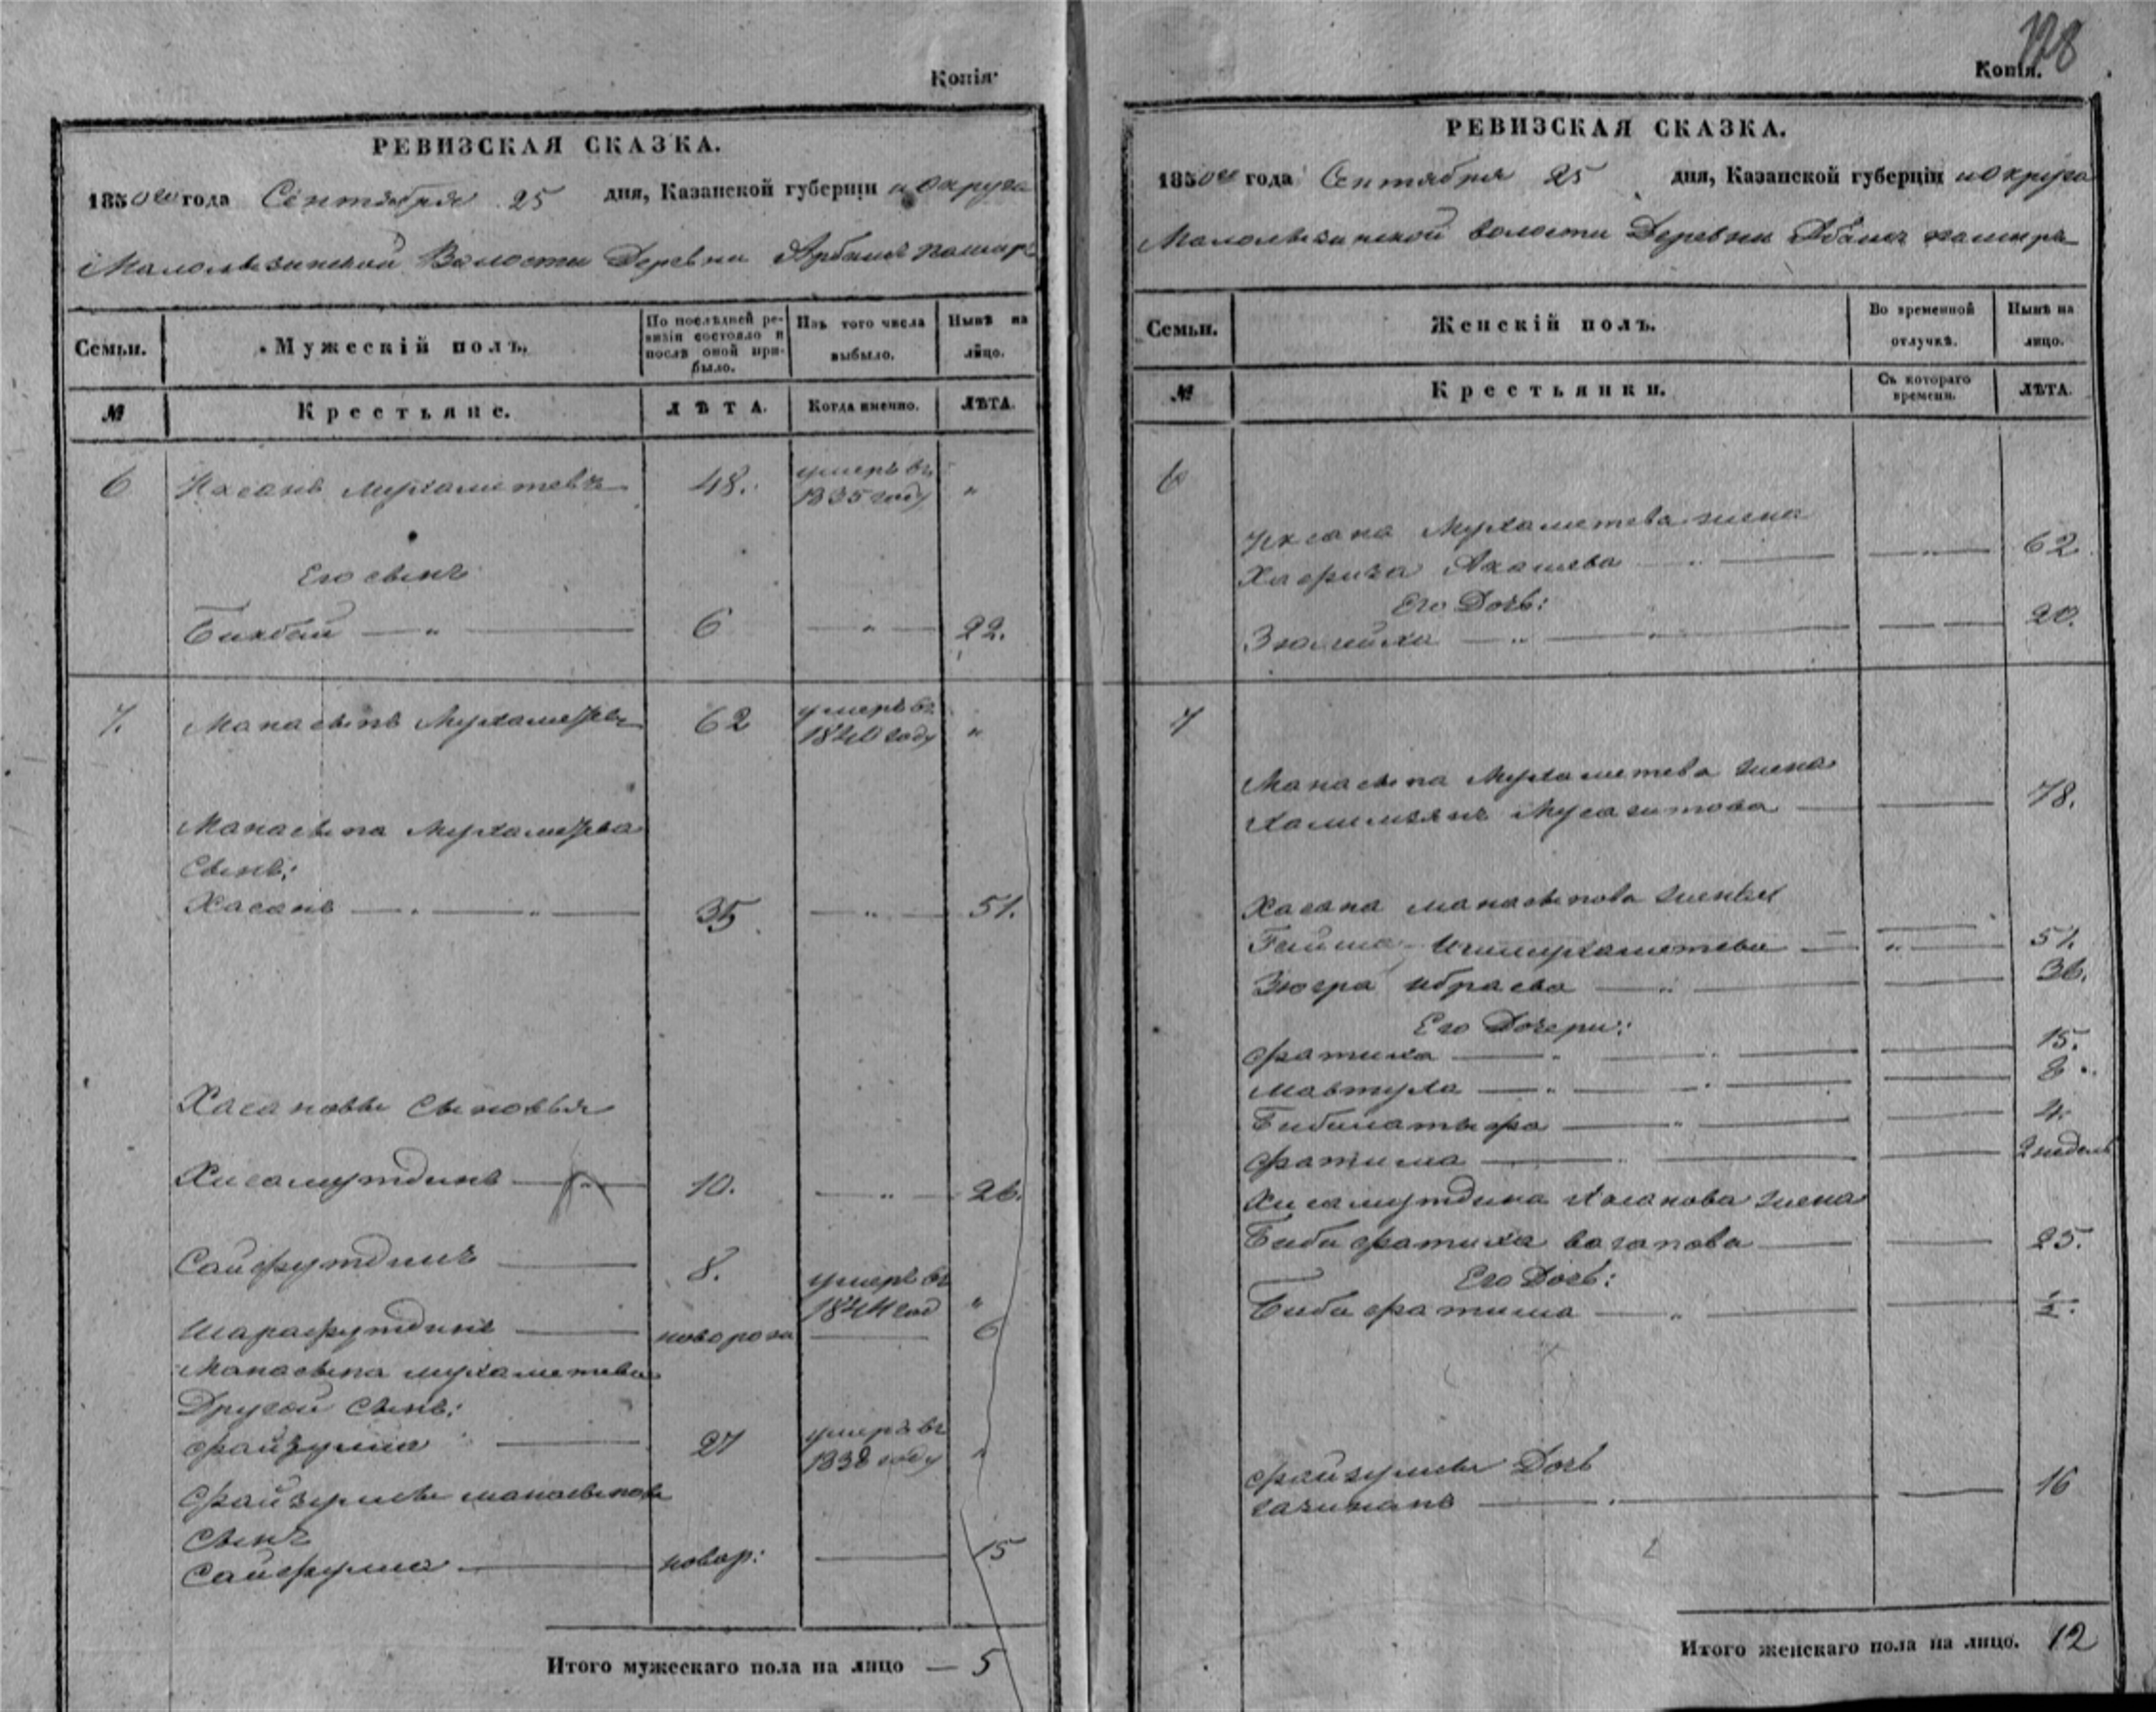 Копія.
РЕВИЗСКАЯ СКАЗКА.
1850го года Сентября 25 дня, Казанской губерніи и округа
Волости Деревни
Семьи.
Мужескій полъ.
По послѣдней ревизіи состояло и послѣ оной прибыло.
Изъ того числа выбыло.
Нынѣ на лицо.
№
Крестьяне.
ЛѢТА.
Когда именно.
ЛѢТА.
6 Мухаметевъ 48. умеръ въ 1835 году "
Его сынъ
Бикбай — " — 6 — " — 22.
7. Манасыпъ Мухаметевъ 62 умеръ въ 1840 году "
Манасыпа Мухаметева
сынъ:
Хасанъ — " — 35 — " — 51.
Хасановы сыновья
Хисамутдинъ — 10. — " — 26.
Сайфутдинъ — 8. умеръ въ 1844 год "
Шарафутдинъ — новорож — 6
Манасыпа мухаметева
Другой сынъ:
Файзулла — 27 умеръ въ 1838 году "
Файзуллы манасыпова
сынъ
Сайфулла — новор: — 15
Итого мужескаго пола на лицо — 5
128
Копія.
РЕВИЗСКАЯ СКАЗКА.
1850го года Сентября 25 дня, Казанской губерніи и округа
волости Деревни
Семьи.
Женскій полъ.
Во временной отлучкѣ.
Нынѣ на лицо.
№
Крестьянки.
Съ котораго времени.
ЛѢТА.
6
Мухаметева жена
— " — 62
Его Дочь:
— " — 20.
7
Манасыпа Мухаметева жена
— 78.
Хасана манасыпова жены
Ишмухаметева — " — 51.
Зюгра ибраева — " — 36.
Его Дочери:
Фатиха — " — 15.
Мавтуха — " — 8.
— " — 4.
Фатима — " — 2 недель
Хисамутдина Хасанова жена
Биби фатиха вагапова — 25.
Его Дочь:
Биби фатима — " — ½.
Файзуллы Дочь
— 16
Итого женскаго пола на лицо. 12